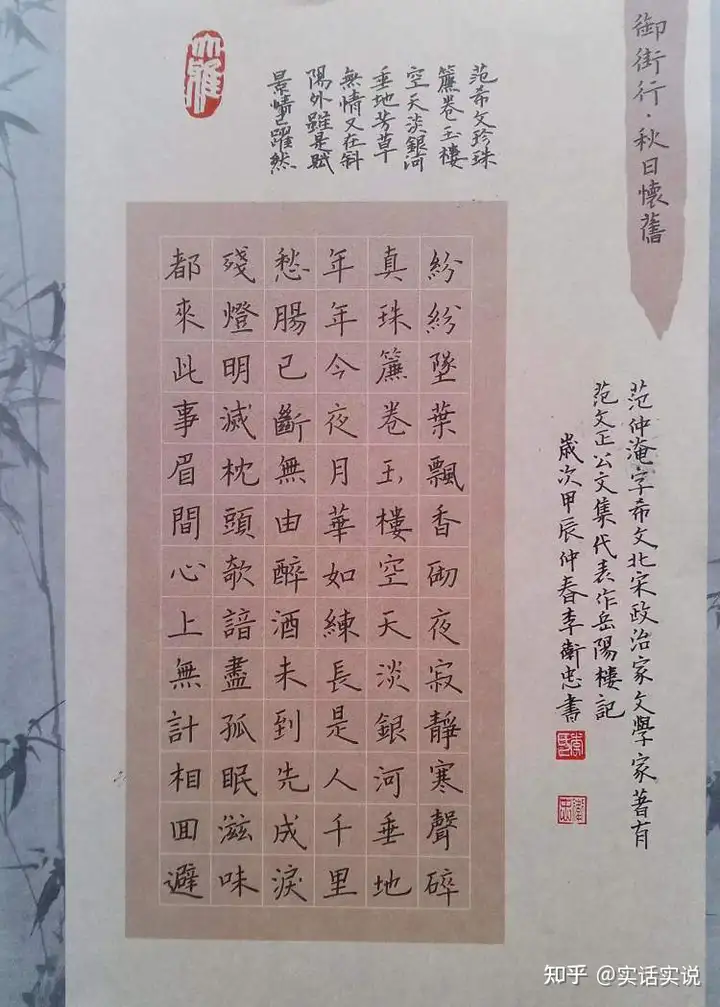 御街行·秋日懷舊
范仲淹字希文北宋政治家文學家著有
范文正公文集代表作岳陽樓記
歲次甲辰仲春李衛忠書
衛忠
范希文珍珠
簾卷玉樓
空天淡銀河
垂地芳草
無情又在斜
陽外雖是賦
景情已躍然
大雅
紛紛墜葉飄香砌夜寂靜寒聲碎
真珠簾卷玉樓空天淡銀河垂地
年年今夜月華如練長是人千里
愁腸已斷無由醉酒未到先成淚
殘燈明滅枕頭欹諳盡孤眠滋味
都來此事眉間心上無計相囬避
知乎 @实话实说